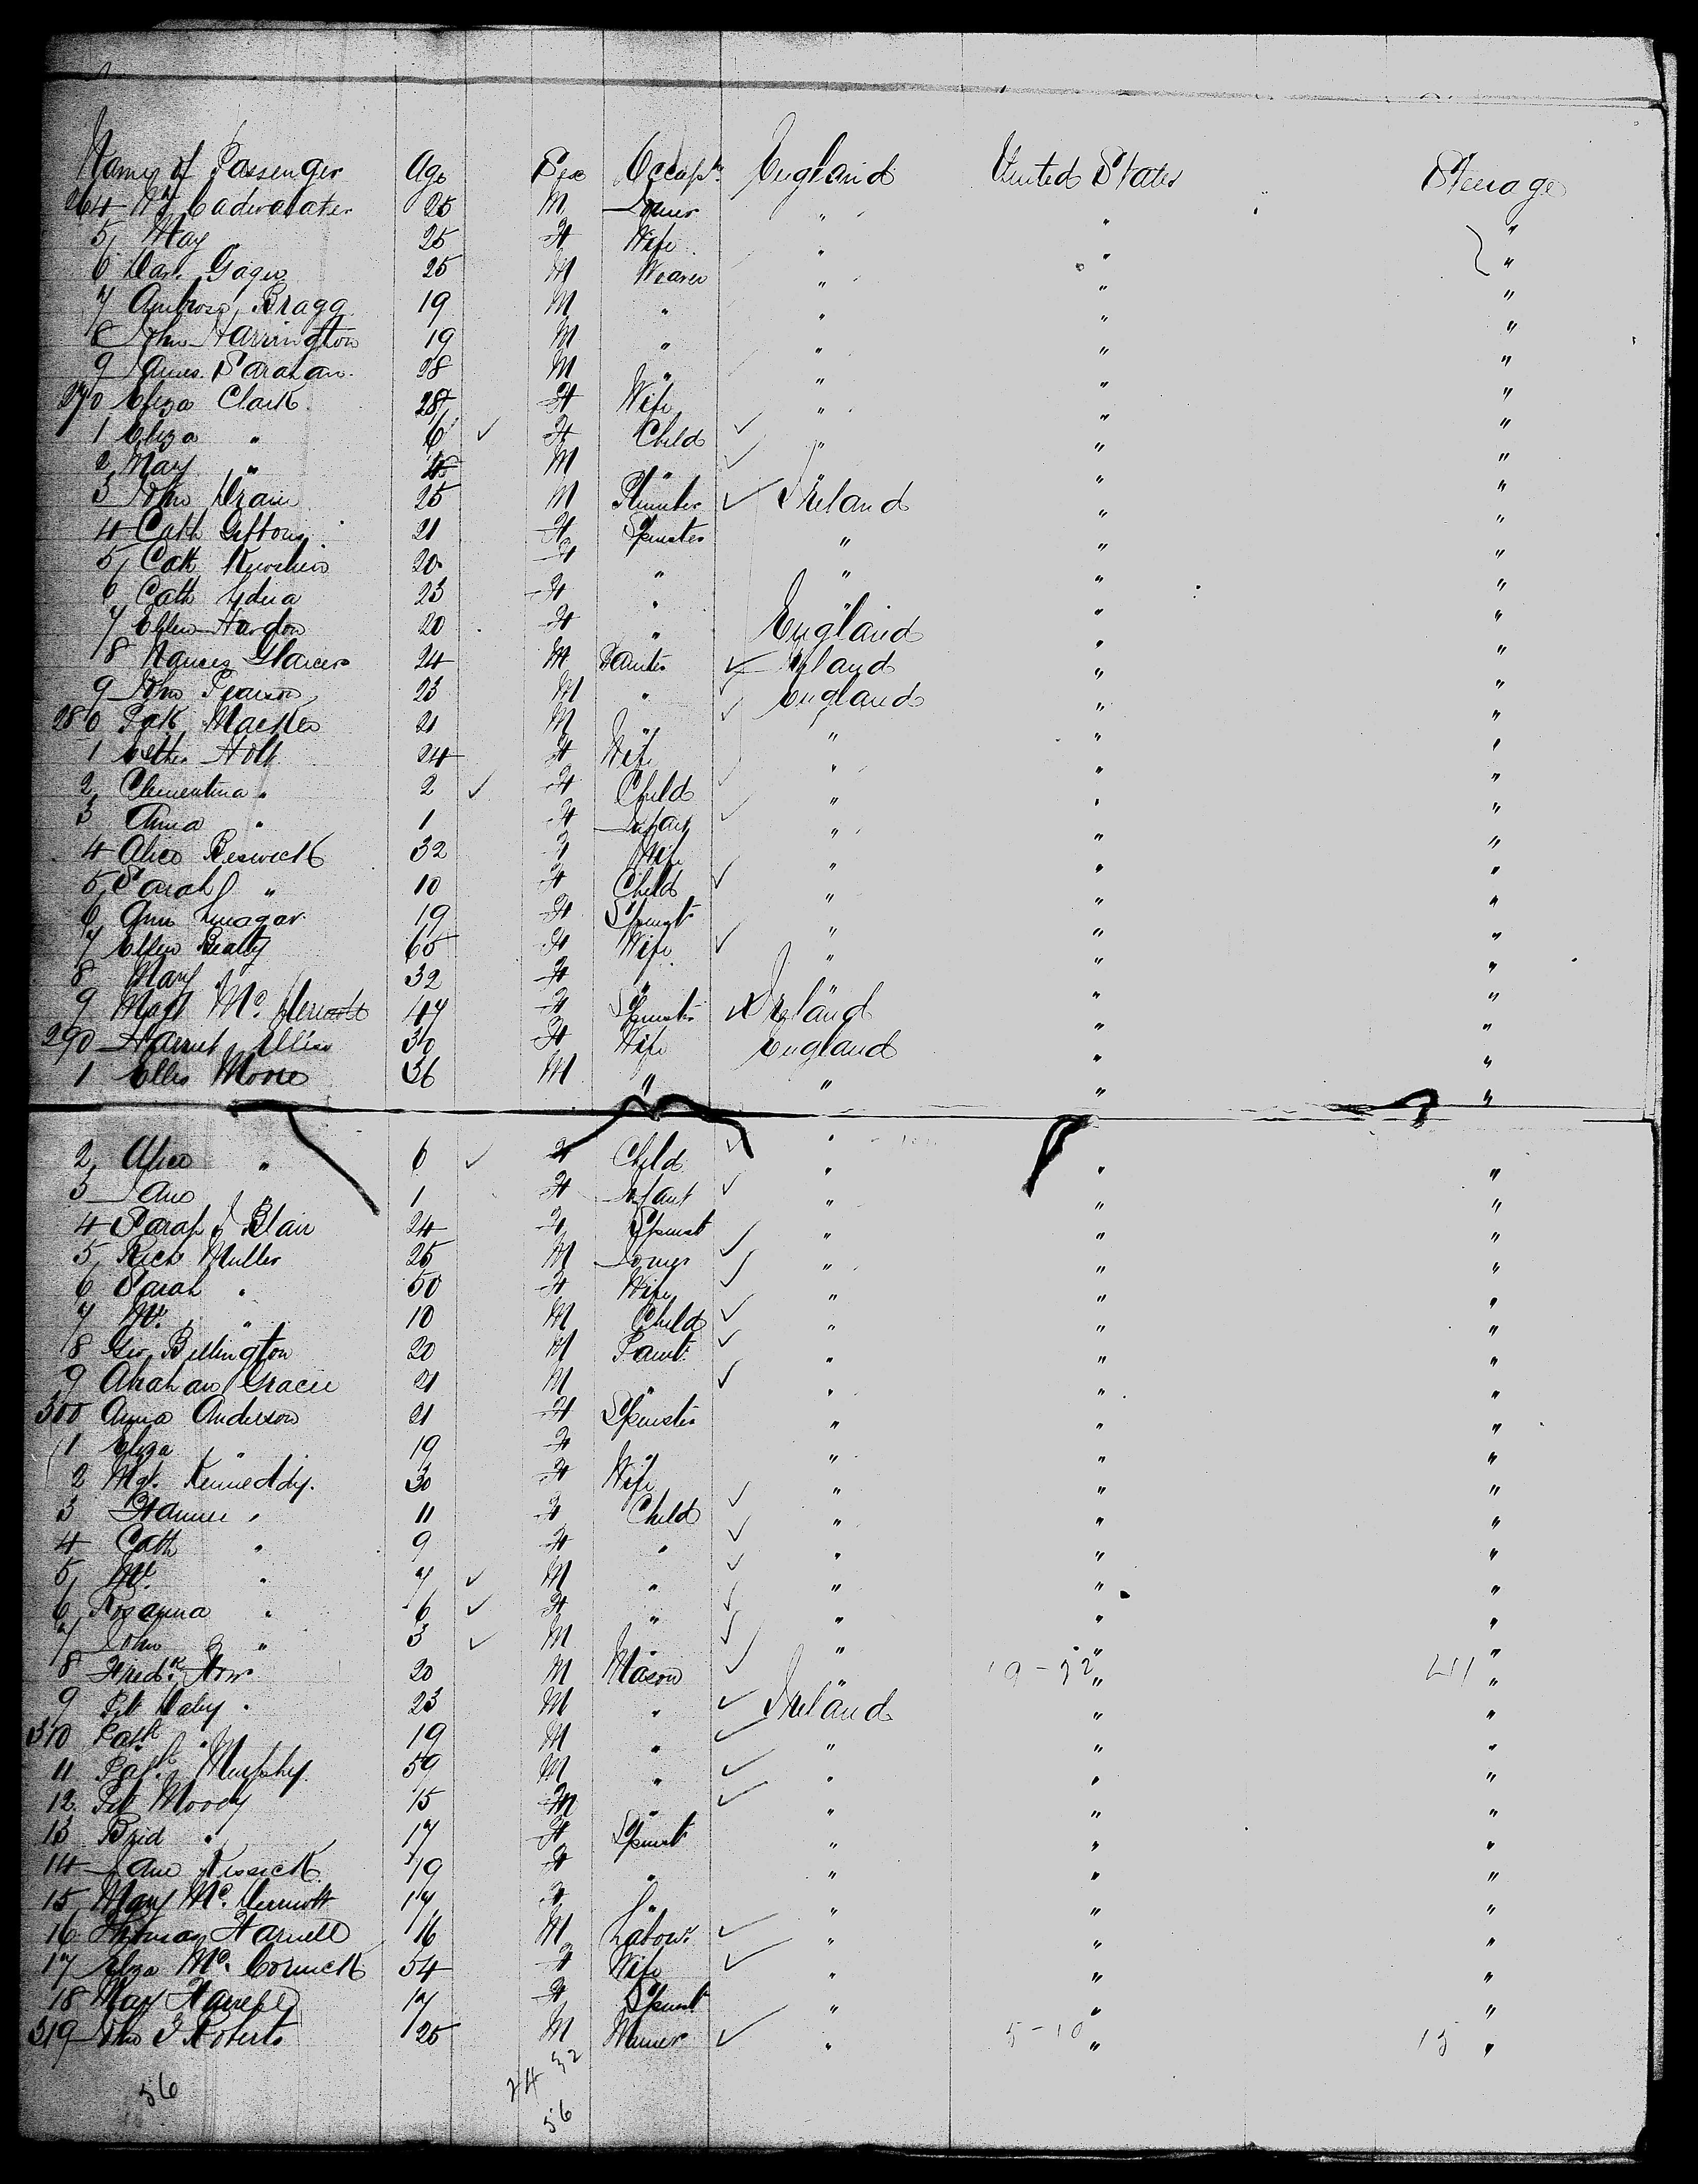 Name of Passenger Age Sex Occupn. England United States Steerage
264 Wm Cadwalater 25 M " " "
5 May 25 F Wife " " "
6 Gager 25 M Weaver " " "
7 Ambrose Bragg 19 M " " " "
8 John Harrington 19 M " " " "
9 James 28 M " " " "
270 Eliza Clark 28 F Wife " " "
1 Eliza " 6 ✓ F Child ✓ " " "
2 Mary " M " ✓ " " "
3 John 25 M ✓ Ireland " "
4 Cath 21 F Spinster " " "
5 Cath 20 F " " " "
6 Cath 23 F " " " "
7 Ellen Hardon 20 F " England " "
8 24 M ✓ Ireland " "
9 Jno Pearson 23 M " ✓ England " "
280 Patk 21 M " " " "
1 Esther Holt 24 F Wife " " "
2 Clementina " 2 ✓ F Child ✓ " " "
3 Anna " 1 F Infant ✓ " " "
4 Alice Beswick 32 F Wife " " "
5 Sarah " 10 F Child ✓ " " "
6 Ann 19 F Spinst " " "
7 Ellen Beatty 65 F Wife ✓ " " "
8 Mary " 32 F " " " "
9 Magt Mc 47 F Spinster ✓ Ireland " "
290 Harriet Ellis 30 F Wife England " "
1 Ellis Moore 36 M " " " "
2 Alice " 6 ✓ F Child ✓ " " "
3 Jane " 1 F Infant ✓ " " "
4 Sarah J Blair 24 F Spinst " " "
5 Richd Muller 25 M ✓ " " "
6 Sarah " 50 F Wife ✓ " " "
7 Wm. " 10 M Child ✓ " " "
8 Geo. Bellington 20 M Paint. ✓ " " "
9 Abraham Gracie 21 M " ✓ " " "
300 Anna Anderson 21 F Spinster " " "
1 Eliza " 19 F " " " "
2 Mgt. Kenneddy. 30 F Wife " " "
3 " 11 F Child ✓ " " "
4 Cath " 9 F " ✓ " " "
5 Wm. " 7 ✓ M " ✓ " " "
6 Rosanna " 6 ✓ F " ✓ " " "
7 John " 3 ✓ M " ✓ " " "
8 Fredk. 20 M Mason ✓ " "
9 Pat Daley 23 M " ✓ Ireland " "
310 Patk " 19 M " ✓ " " "
11 Patk. Murphy. 59 M " ✓ " " "
12 Pat Moody 15 M " ✓ " " "
13 Brid " 17 F Spinst " " "
14 Jane Kissick 19 F " " " "
15 Mary Mc. Dermott 17 F " " " "
16 Thomas Harvell 16 M Labour ✓ " " "
17 Eliza Mc. Cormick 54 F Wife ✓ " " "
18 May 17 F Spinst " " "
319 Jno J Roberts 25 M Miner ✓ " 5-10 " 15 "
24 32
56 56